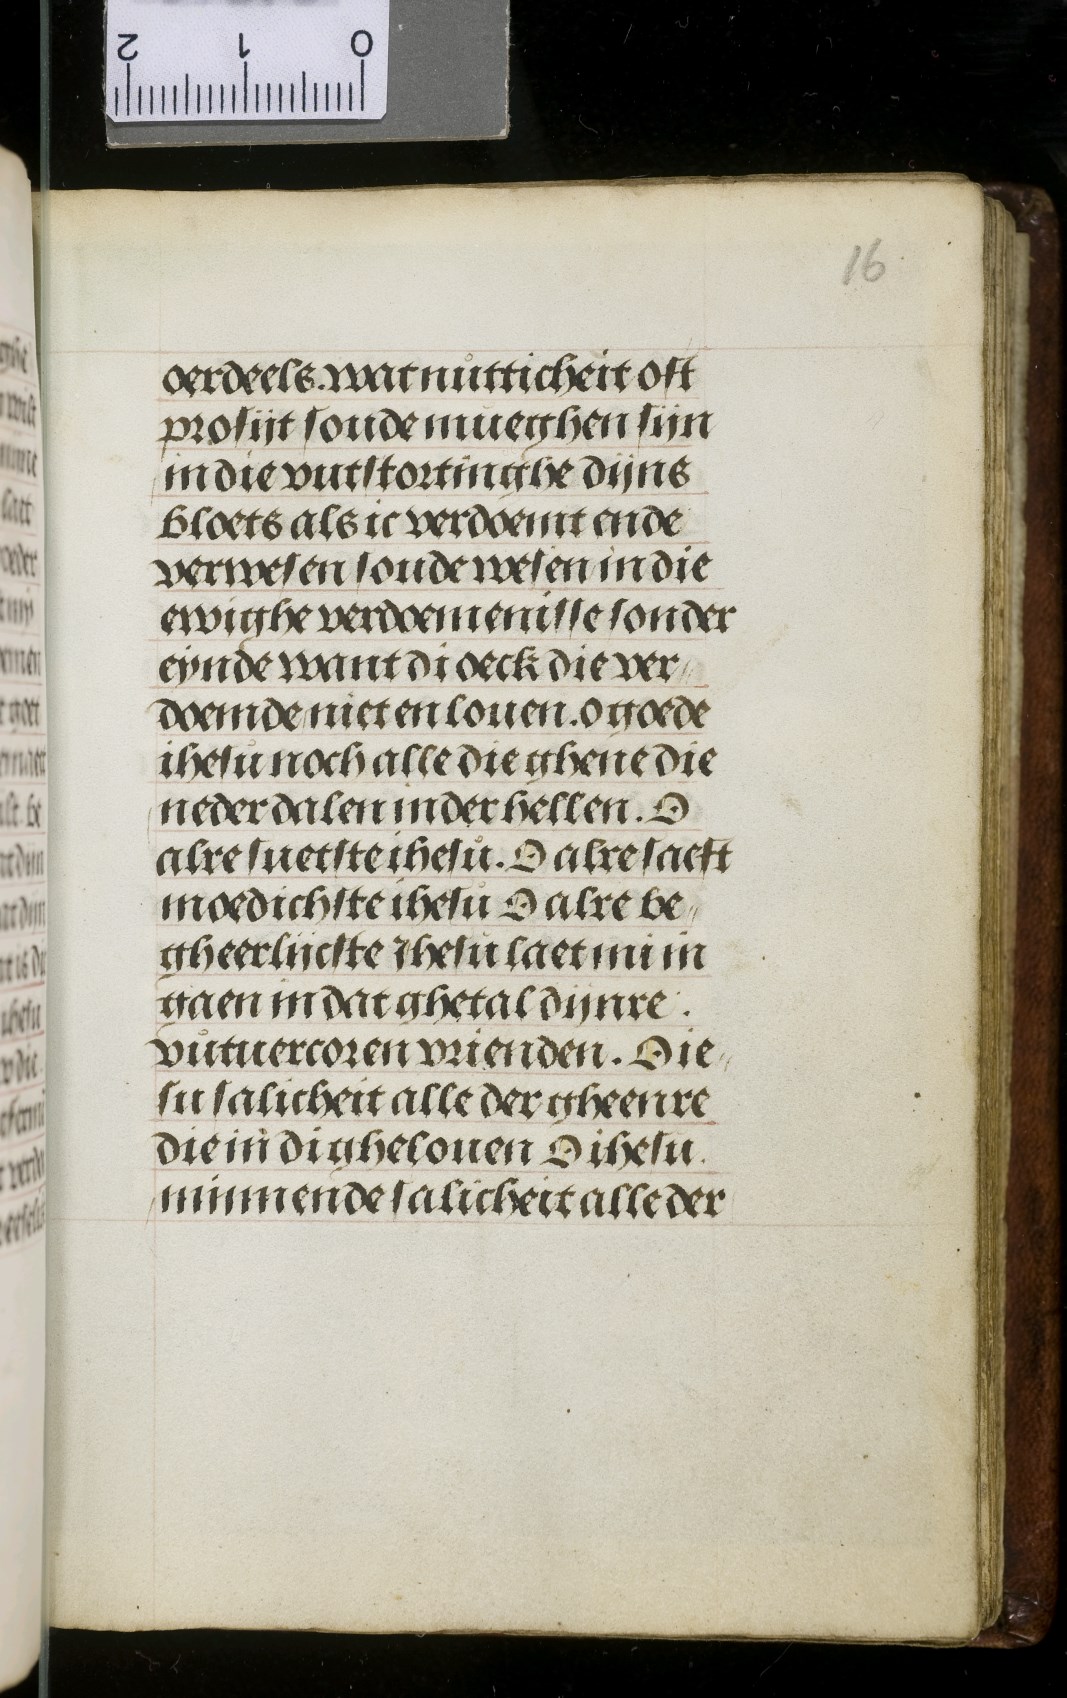 2 1 0
16
oerdeels. wat nutticheit oft
profijt soude mueghen sijn
in die vutstortinghe dijns
bloets als ic verdoemt ende
verwesen soude wesen in die
ewighe verdoemenisse sonder
eynde want di oeck die ver//
doemde niet en louen. o goede
ihesu noch alle die ghene die
neder dalen in der hellen. O
alre suetste ihesu. O alre saeft
moedichste ihesu O alre be//
gheerlijcste Ihesu laet mi in
gaen in dat ghetal dijnre.
vutuercoren vrienden. O ie//
su salicheit alle der gheenre
die in di ghelouen O ihesu.
minnende salicheit alle der